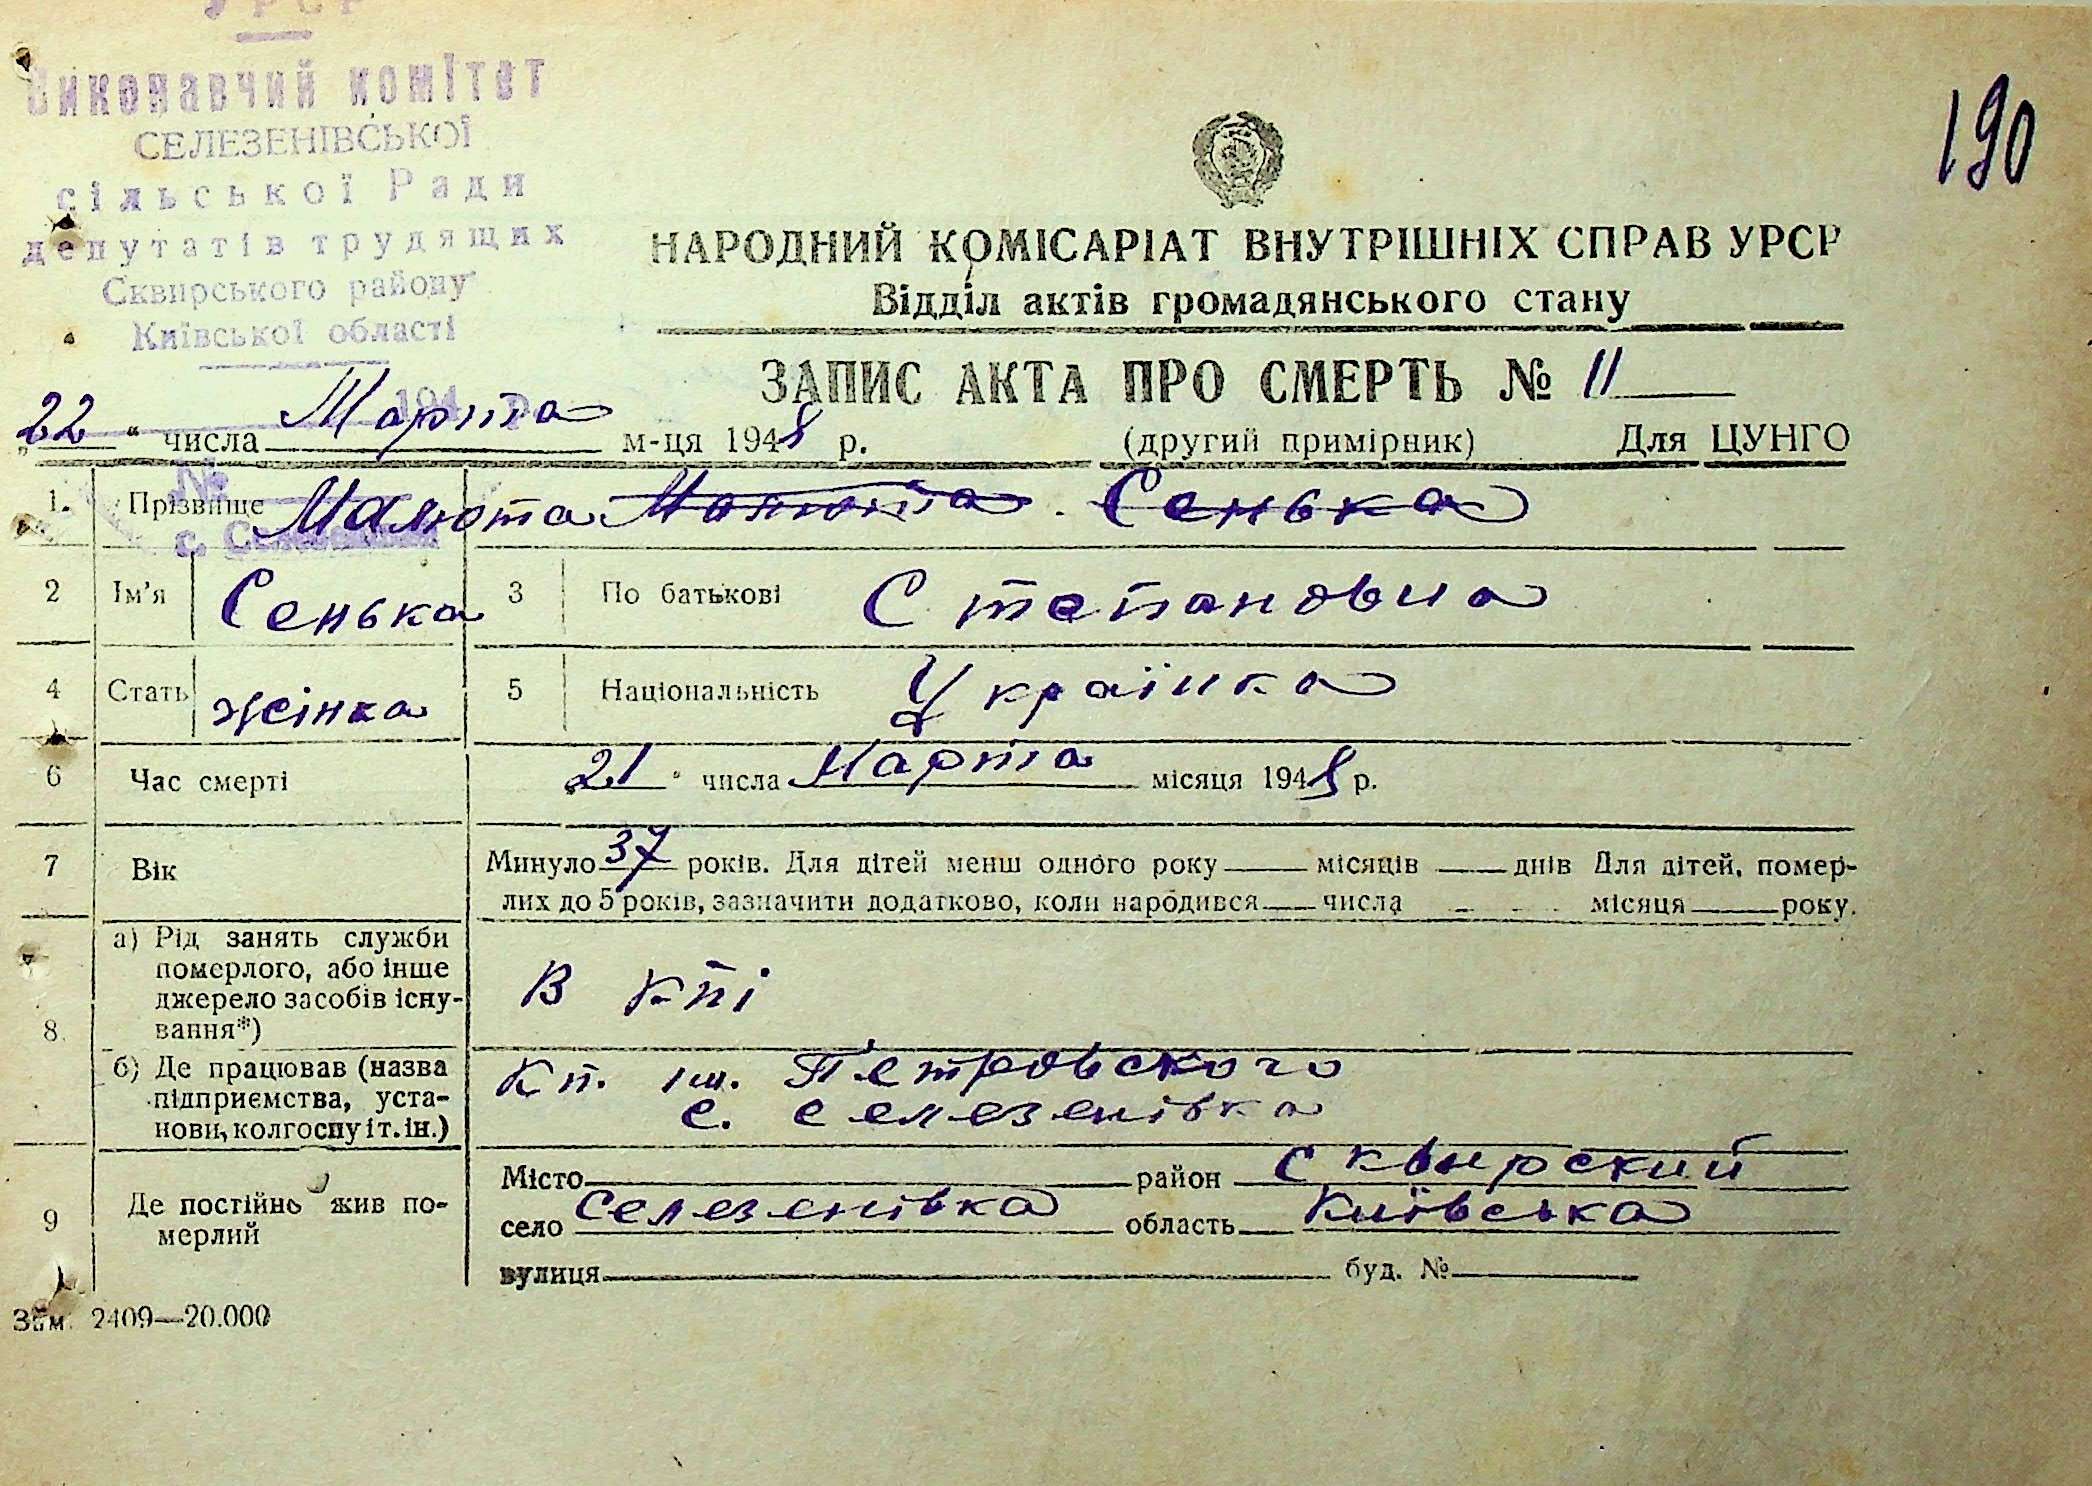 УРСР
Виконавчий комітет
СЕЛЕЗЕНІВСЬКОЇ
сільської Ради
депутатів трудящих
Сквирського району
Київської області
190
НАРОДНИЙ КОМІСАРІАТ ВНУТРІШНІХ СПРАВ УРСР
Відділ актів громадянського стану
ЗАПИС АКТА ПРО СМЕРТЬ № 11
„22“ числа Марта м-ця 1948 р. (другий примірник) Для ЦУНГО
1. Прізвище Малюта Малюта Сенька
№
с.
2 Ім'я Сенька 3 По батькові Степановна
4 Стать жінка 5 Національність Українка
6 Час смерті „21“ числа Марта місяця 1948 р.
7 Вік Минуло 37 років. Для дітей менш одного року місяців днів Для дітей, помер-
лих до 5 років, зазначити додатково, коли народився числа місяця року.
8. а) Рід занять служби
померлого, або інше
джерело засобів існу-
вання*) В кпі
б) Де працював (назва
підприємства, уста-
нови, колгоспу і т. ін.) Кп. ім. Петровского
с. Селезенівка
9 Де постійно жив по-
мерлий
Місто район Сквирский
село Селезенівка область Київська
вулиця буд. №
Зам. 2409—20.000